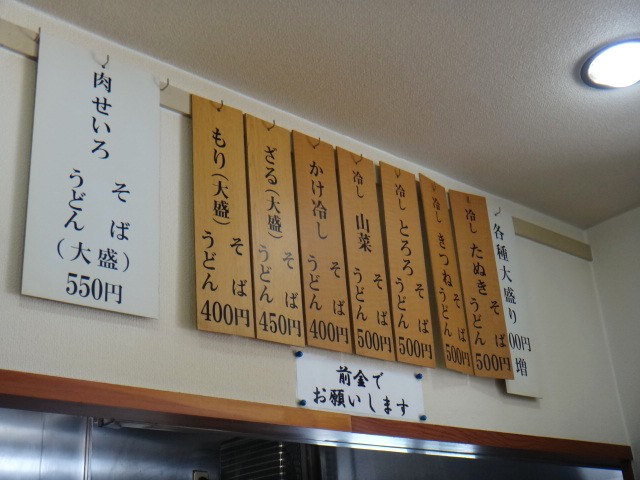 肉せいろ
そば
うどん
(大盛)
550円
もり(大盛)
そば
うどん
400円
ざる(大盛)
そば
うどん
450円
かけ冷し
そば
うどん
400円
冷し 山菜
そば
うどん
500円
冷し とろろ
そば
うどん
500円
冷し きつね
そば
うどん
500円
冷し たぬき
そば
うどん
500円
各種大盛り
00円
増
前金で
お願いします